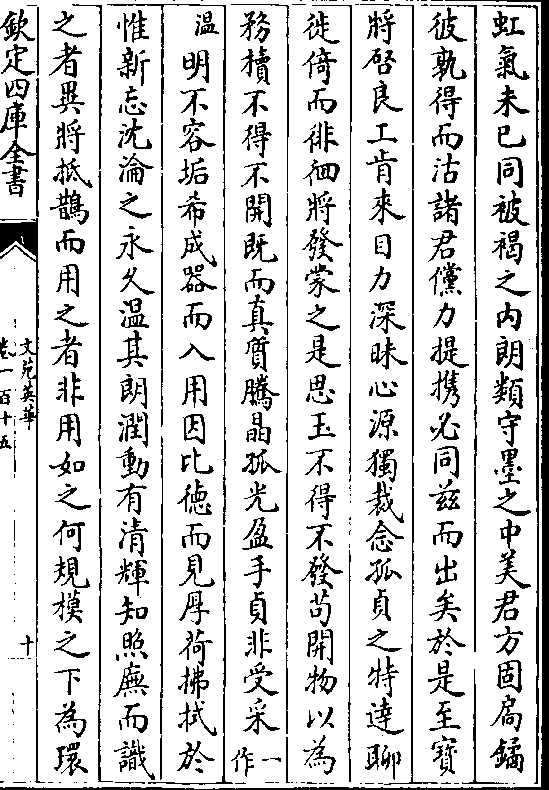 虹氣未已同被褐之内朗類守墨之中美君方固扄鐍
彼孰得而沽諸君儻力提携必同兹而出矣於是至寳
將啓良工肯來目力深昧心源獨裁念孤貞之特達聊
徙倚而徘徊將發蒙之是思玉不得不發苟開物以為
務櫝不得不開既而真質騰晶孤光盈手貞非受采一作
温明不容垢希成器而入用因比徳而見厚荷拂拭於
惟新忘沈淪之永久温其朗潤動有清輝知照廡而識
之者異將抵鵲而用之者非用如之何規模之下為環
欽定四庫全書
文苑英華
卷一百十五
十